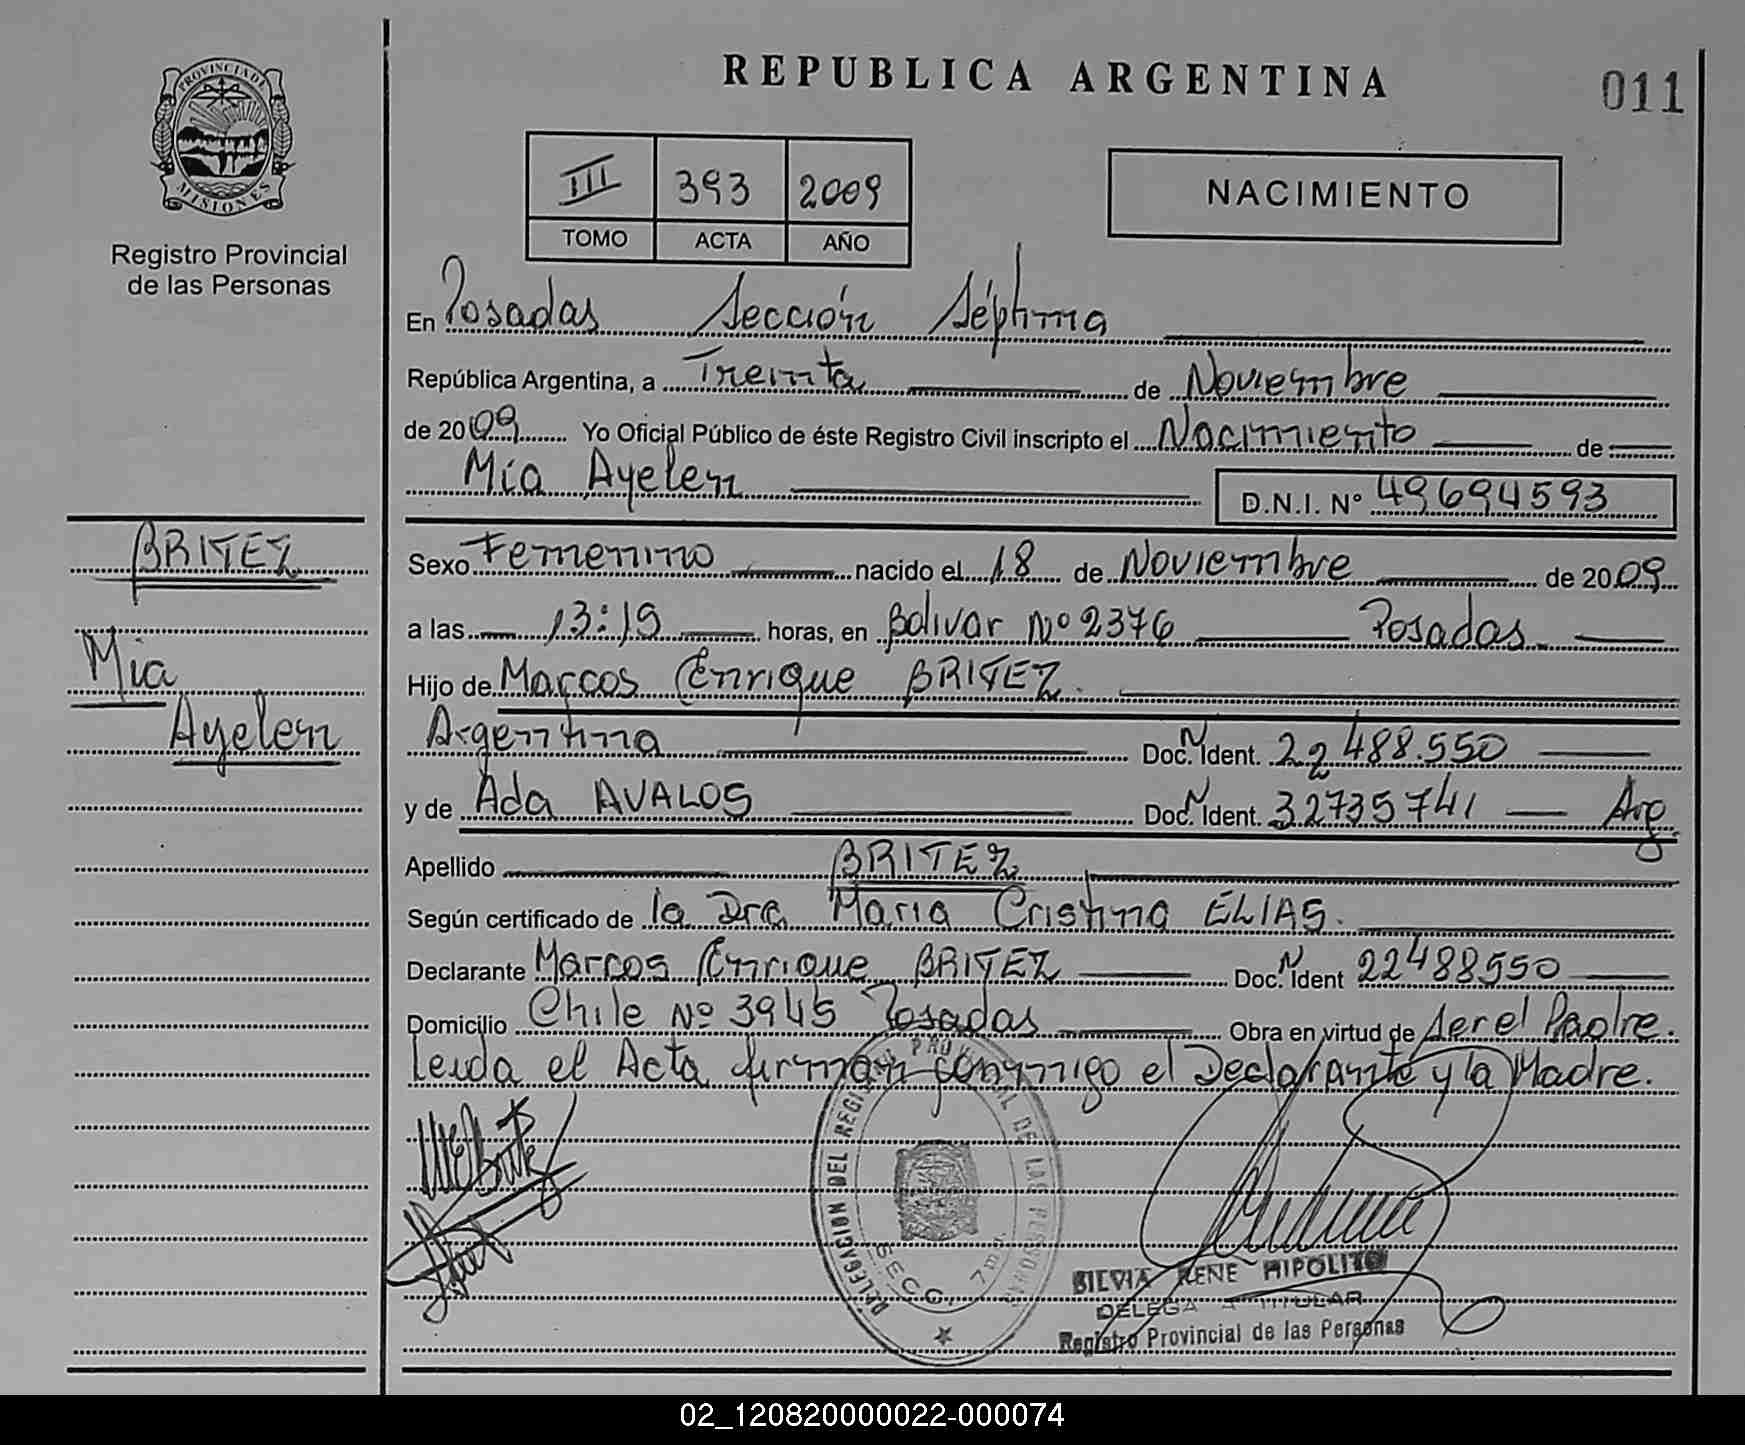 PROVINCIA DE
MISIONES
Registro Provincial
de las Personas
BRITEZ
Mia
Ayelen
REPUBLICA ARGENTINA
011
III 393 2009
TOMO ACTA AÑO
NACIMIENTO
En Posadas Sección Séptima
República Argentina, a Treinta de Noviembre
de 2009 Yo Oficial Público de éste Registro Civil inscripto el Nacimiento de
Mía Ayelen D.N.I. N° 49694593
Sexo Femenino nacido el 18 de Noviembre de 2009
a las 13:19 horas, en Bolivar Nº 2376 Posadas
Hijo de Marcos Enrique BRITEZ.
Argentina Doc. N Ident. 22488.550
y de Ada AVALOS Doc. N Ident. 32735741 Arg.
Apellido BRITEZ
Según certificado de la Dra Maria Cristina ELIAS.
Declarante Marcos Enrique BRITEZ Doc. N Ident 22488550
Domicilio Chile Nº 3945 Posadas Obra en virtud de ser el Padre.
Leida el Acta firman conmigo el Declarante y la Madre.
DELEGACION DEL REGISTRO PROVINCIAL DE LAS PERSONAS
SECC. 7ma.
SILVIA RENE HIPOLITO
DELEGADA TITULAR
Registro Provincial de las Personas
02_120820000022-000074